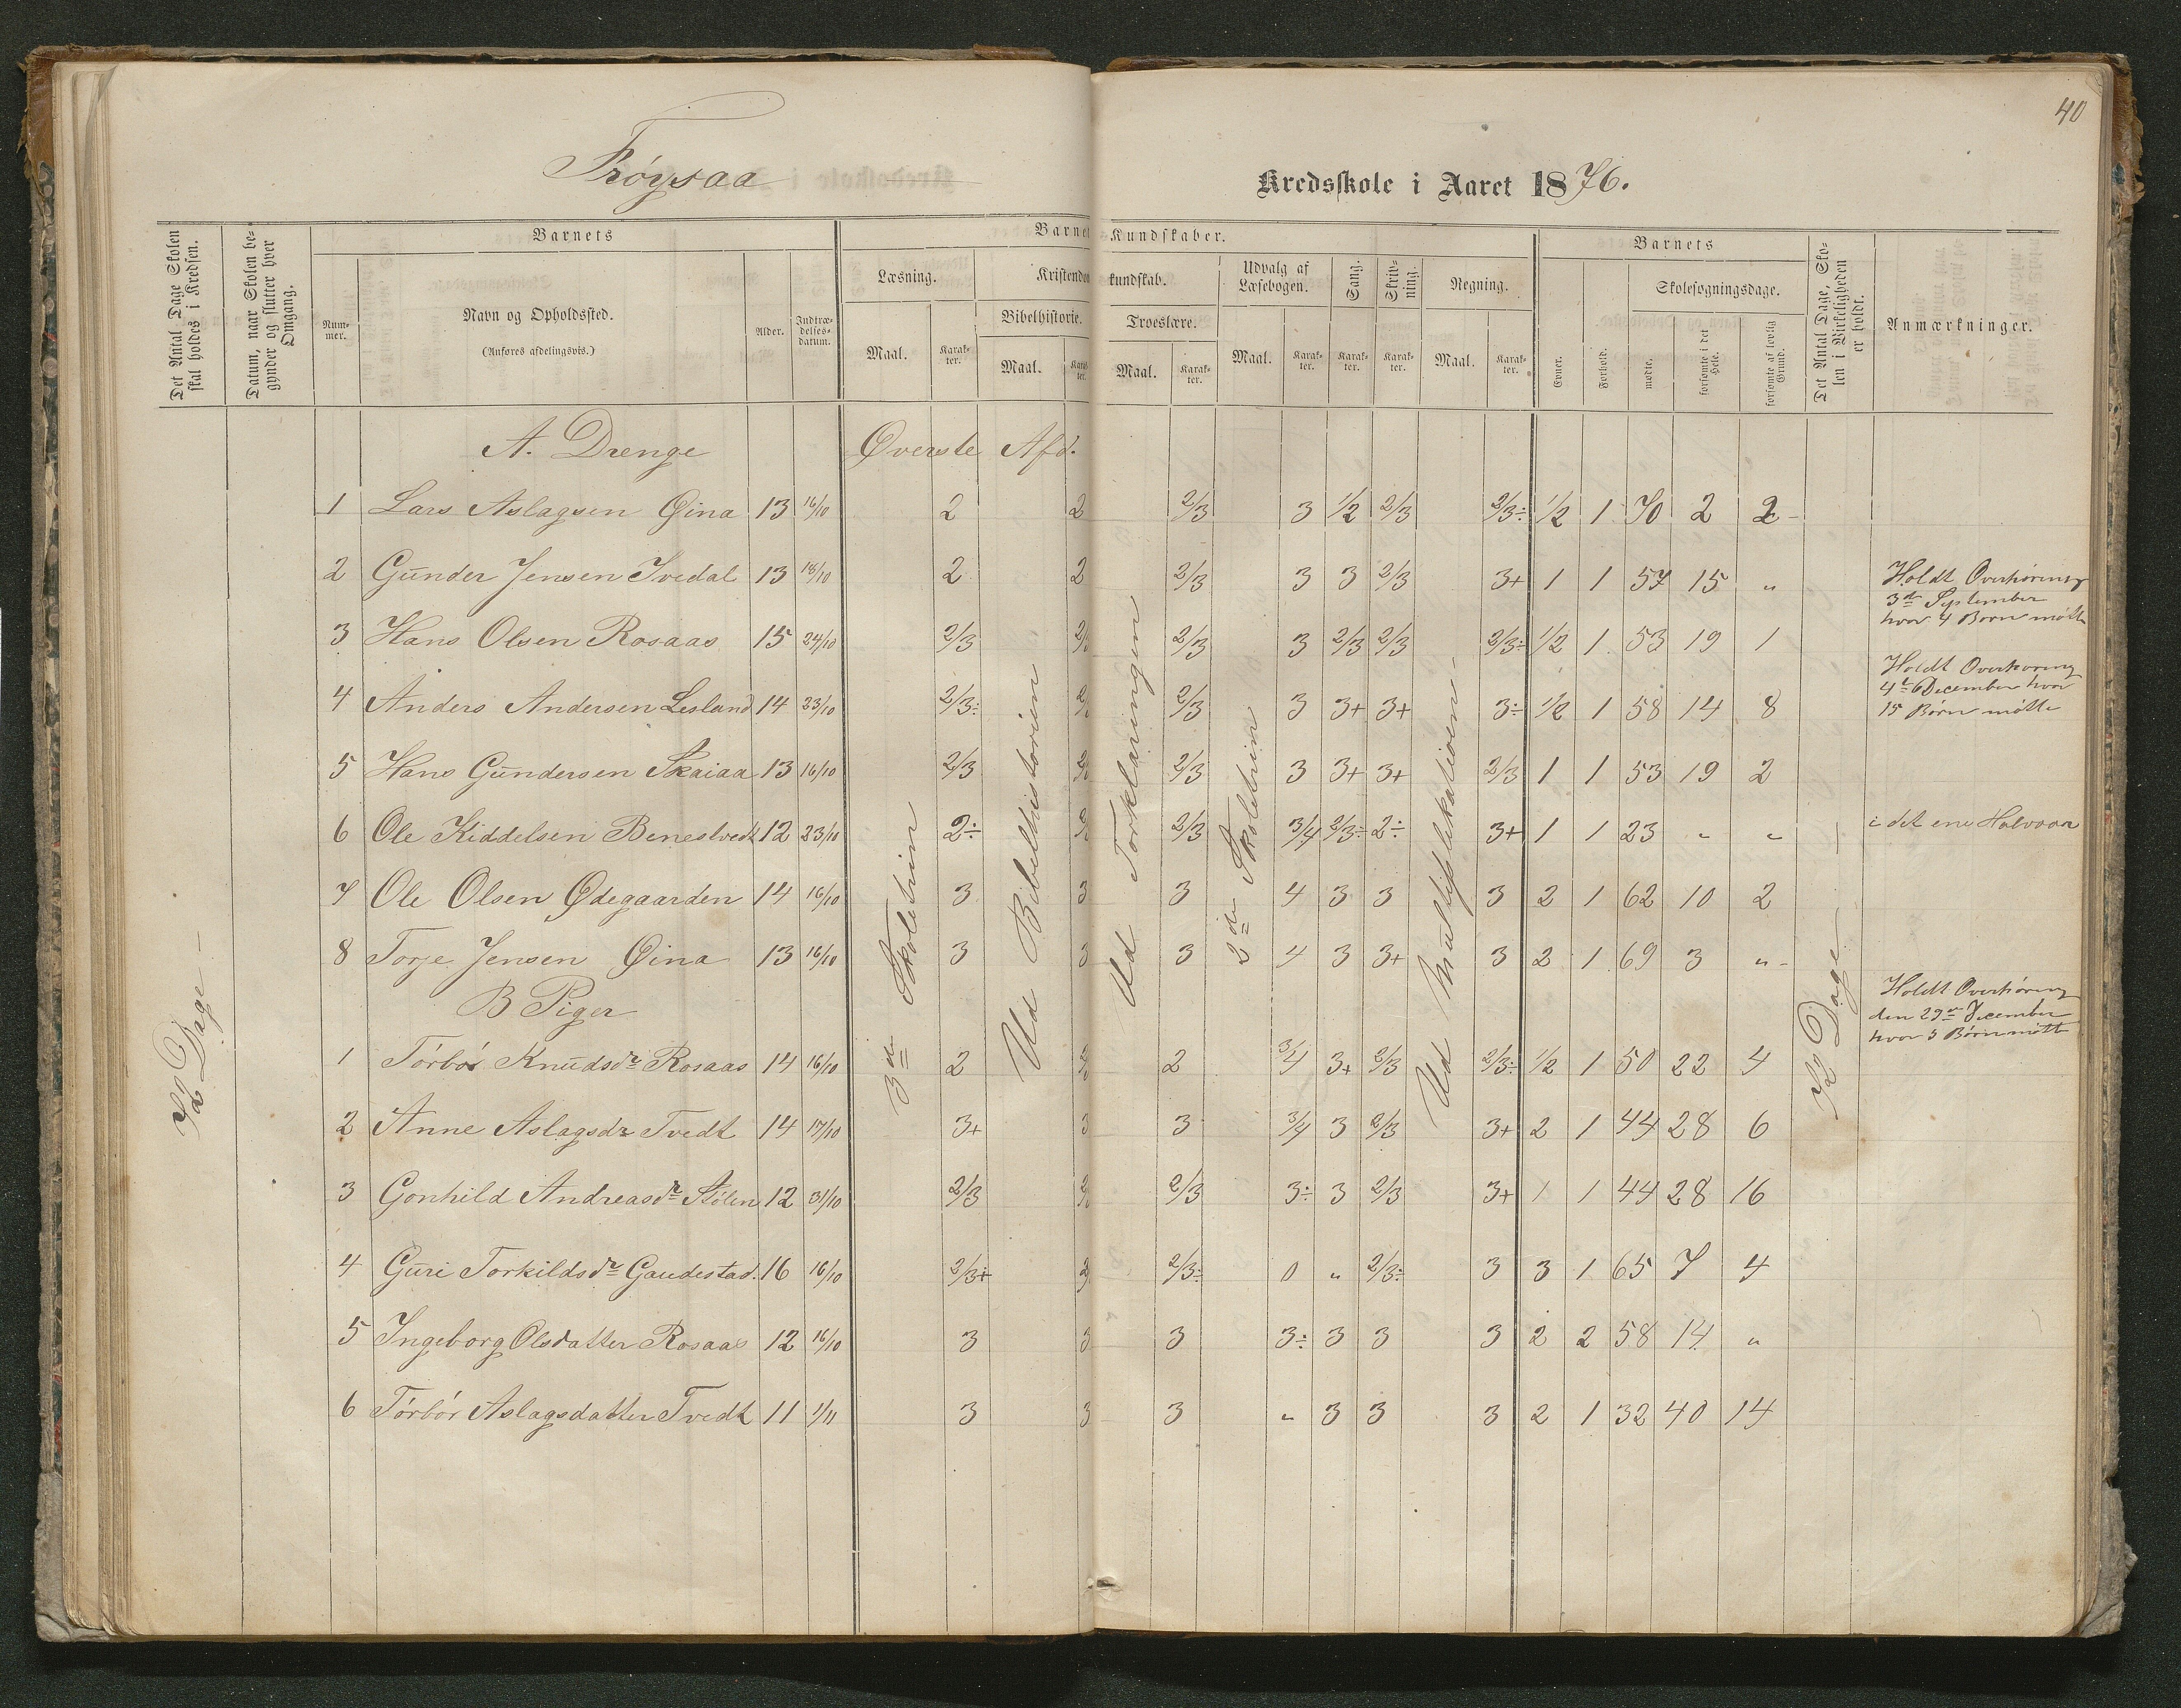 40
Frøysaa Kredsskole i Aaret 1876.
Det Antal Dage Skolen skal holdes i Kredsen.
Datum, naar Skolen begynder og slutter hver Omgang.
Barnets
Nummer.
Navn og Opholdssted.
(Anføres afdelingsvis.)
Alder.
Indtrædelsesdatum.
Barnets Kundskaber.
Læsning.
Maal. Karakter.
Kristendomskundskab.
Bibelhistorie.
Maal. Karakter.
Troeslære.
Maal. Karakter.
Udvalg af Læsebogen.
Maal. Karakter.
Sang.
Karakter.
Skrivning.
Karakter.
Regning.
Maal. Karakter.
Barnets
Evner.
Forhold.
Skolesøgningsdage.
mødte.
forsømte i det Hele.
forsømte af lovlig Grund.
Det Antal Dage, Skolen i Virkeligheden er holdt.
Anmærkninger.
A. Drenge Øverste Afd.
1 Lars Aslagsen Øina 13 16/10 2 2 2/3 3 1/2 2/3 2/3÷ 1/2 1 70 2 2
2 Gunder Jensen Ivedal 13 18/10 2 2 2/3 3 3 2/3 3+ 1 1 57 15 "
3 Hans Olsen Rosaas 15 24/10 2/3 2/3 2/3 3 2/3 2/3 2/3÷ 1/2 1 53 19 1
4 Anders Andersen Lesland 14 23/10 2/3÷ 2/3 2/3 3 3+ 3+ 3÷ 1/2 1 58 14 8
5 Hans Gundersen Skaiaa 13 16/10 2/3 2/3 2/3 3 3+ 3+ 2/3 1 1 53 19 2
6 Ole Kiddelsen Benestvedt 12 23/10 2÷ 2/3 2/3 3/4 2/3÷ 2÷ 3+ 1 1 23 " "
7 Ole Olsen Ødegaarden 14 16/10 3 3 3 4 3 3 3 2 1 62 10 2
8 Torje Jensen Øina 13 16/10 3 3 3 4 3 3+ 3 2 1 69 3 "
B Piger
1 Tørbør Knudsdr Rosaas 14 16/10 2 2/3 2 3/4 3+ 2/3 2/3÷ 1/2 1 50 22 4
2 Anne Aslagsdr Tvedt 14 17/10 3+ 3 3 3/4 3 2/3 3+ 2 1 44 28 6
3 Gonhild Andreasdr Stølen 12 31/10 2/3 2/3 2/3 3÷ 3 2/3 3+ 1 1 44 28 16
4 Guri Torkildsdr Gaudestad. 16 16/10 2/3+ 2/3 2/3÷ 0 " 2/3÷ 3 3 1 65 7 4
5 Ingeborg Olsdatter Rosaas 12 16/10 3 3 3 3÷ 3 3 3 2 2 58 14 "
6 Tørbør Aslagsdatter Tvedt 11 1/11 3 3 3 " 3 3 3 2 1 32 40 14
72 Dage
3die Skoletrin
Ud Bibelhistorien
Ud Forklaringen
3die Skoletrin
Ud Multiplikationen
72 Dage
Holdt Overhøring
3die September
hvor 4 Børn mødte
Holdt Overhøring
December hvor
15 Børn mødte
i det ene Halvaar
Holdt Overhøring
den 29de December
hvor 5 Børn mødte